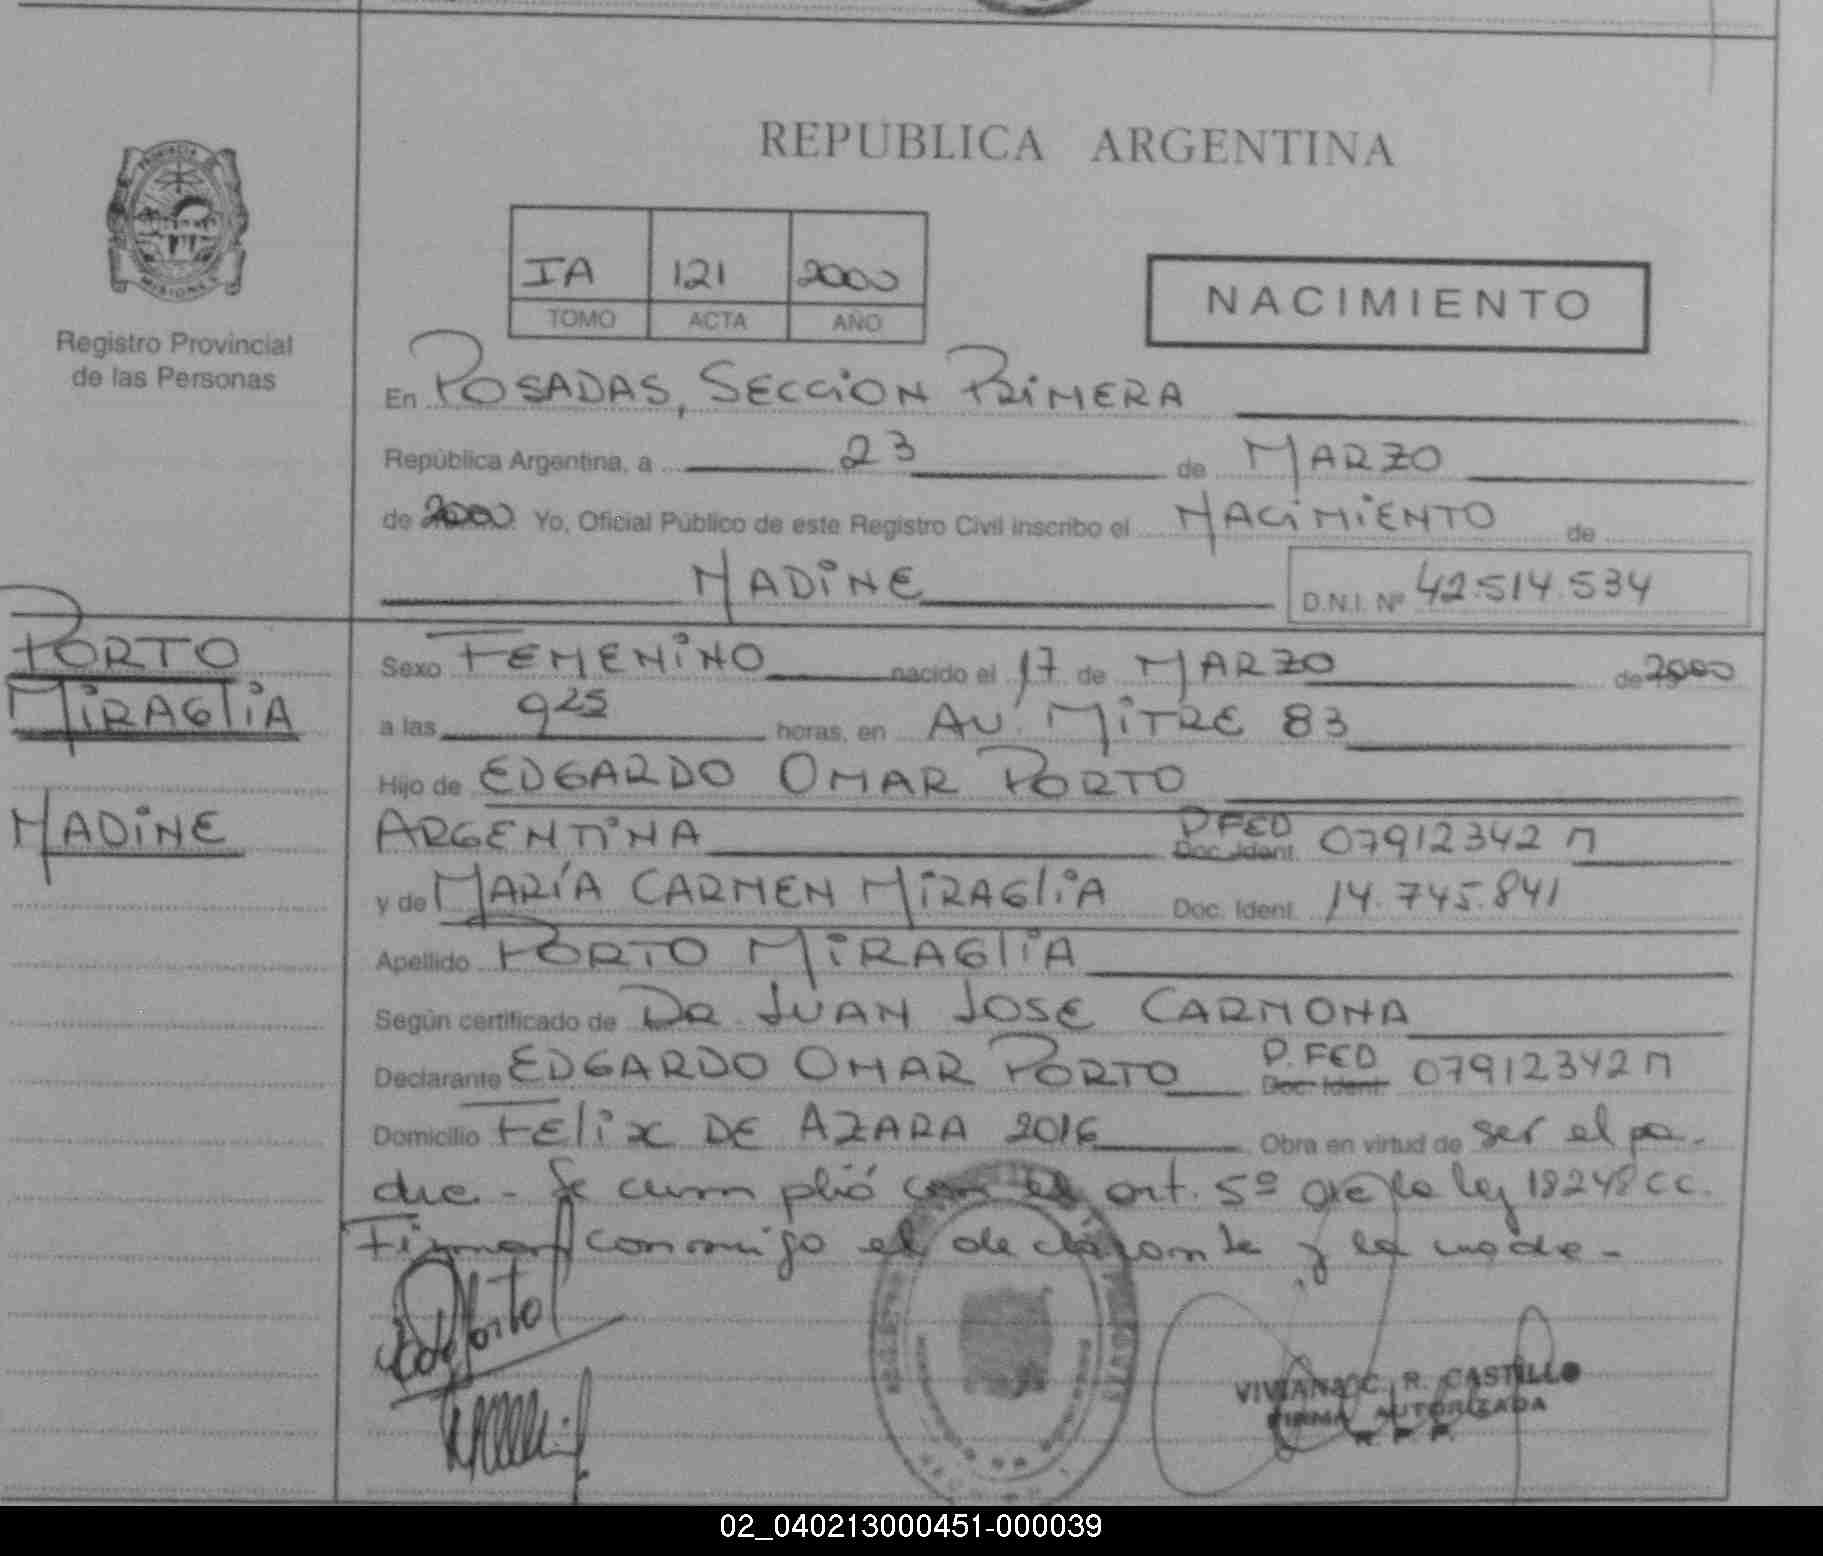 REPUBLICA ARGENTINA
PROVINCIA DE
MISIONES
Registro Provincial
de las Personas
IA 121 2000
TOMO ACTA AÑO
NACIMIENTO
En POSADAS, SECCION PRIMERA
República Argentina, a 23 de MARZO
de 2000 Yo, Oficial Público de este Registro Civil inscribo el NACIMIENTO de
NADINE D.N.I. Nº 42.514.534
PORTO
MIRAGLIA
NADINE
Sexo FEMENINO nacido el 17 de MARZO de 2000
a las 9 25 horas, en AV. MITRE 83
Hijo de EDGARDO OMAR PORTO
ARGENTINA P.FED Doc. Ident. 07912342 M
y de MARÍA CARMEN MIRAGLIA Doc. Ident. 14.745.841
Apellido PORTO MIRAGLIA
Según certificado de DR. JUAN JOSE CARMONA
Declarante EDGARDO OMAR PORTO P.FED Doc. Ident. 07912342 M
Domicilio FELIX DE AZARA 2016 Obra en virtud de ser el pa-
dre - Se cumplió con el art. 5º de la ley 18248 CC.
Firman conmigo el declarante y la madre -
Porto
VIVIANA C. R. CASTILLO
FIRMA AUTORIZADA
R. P. P.
02_040213000451-000039